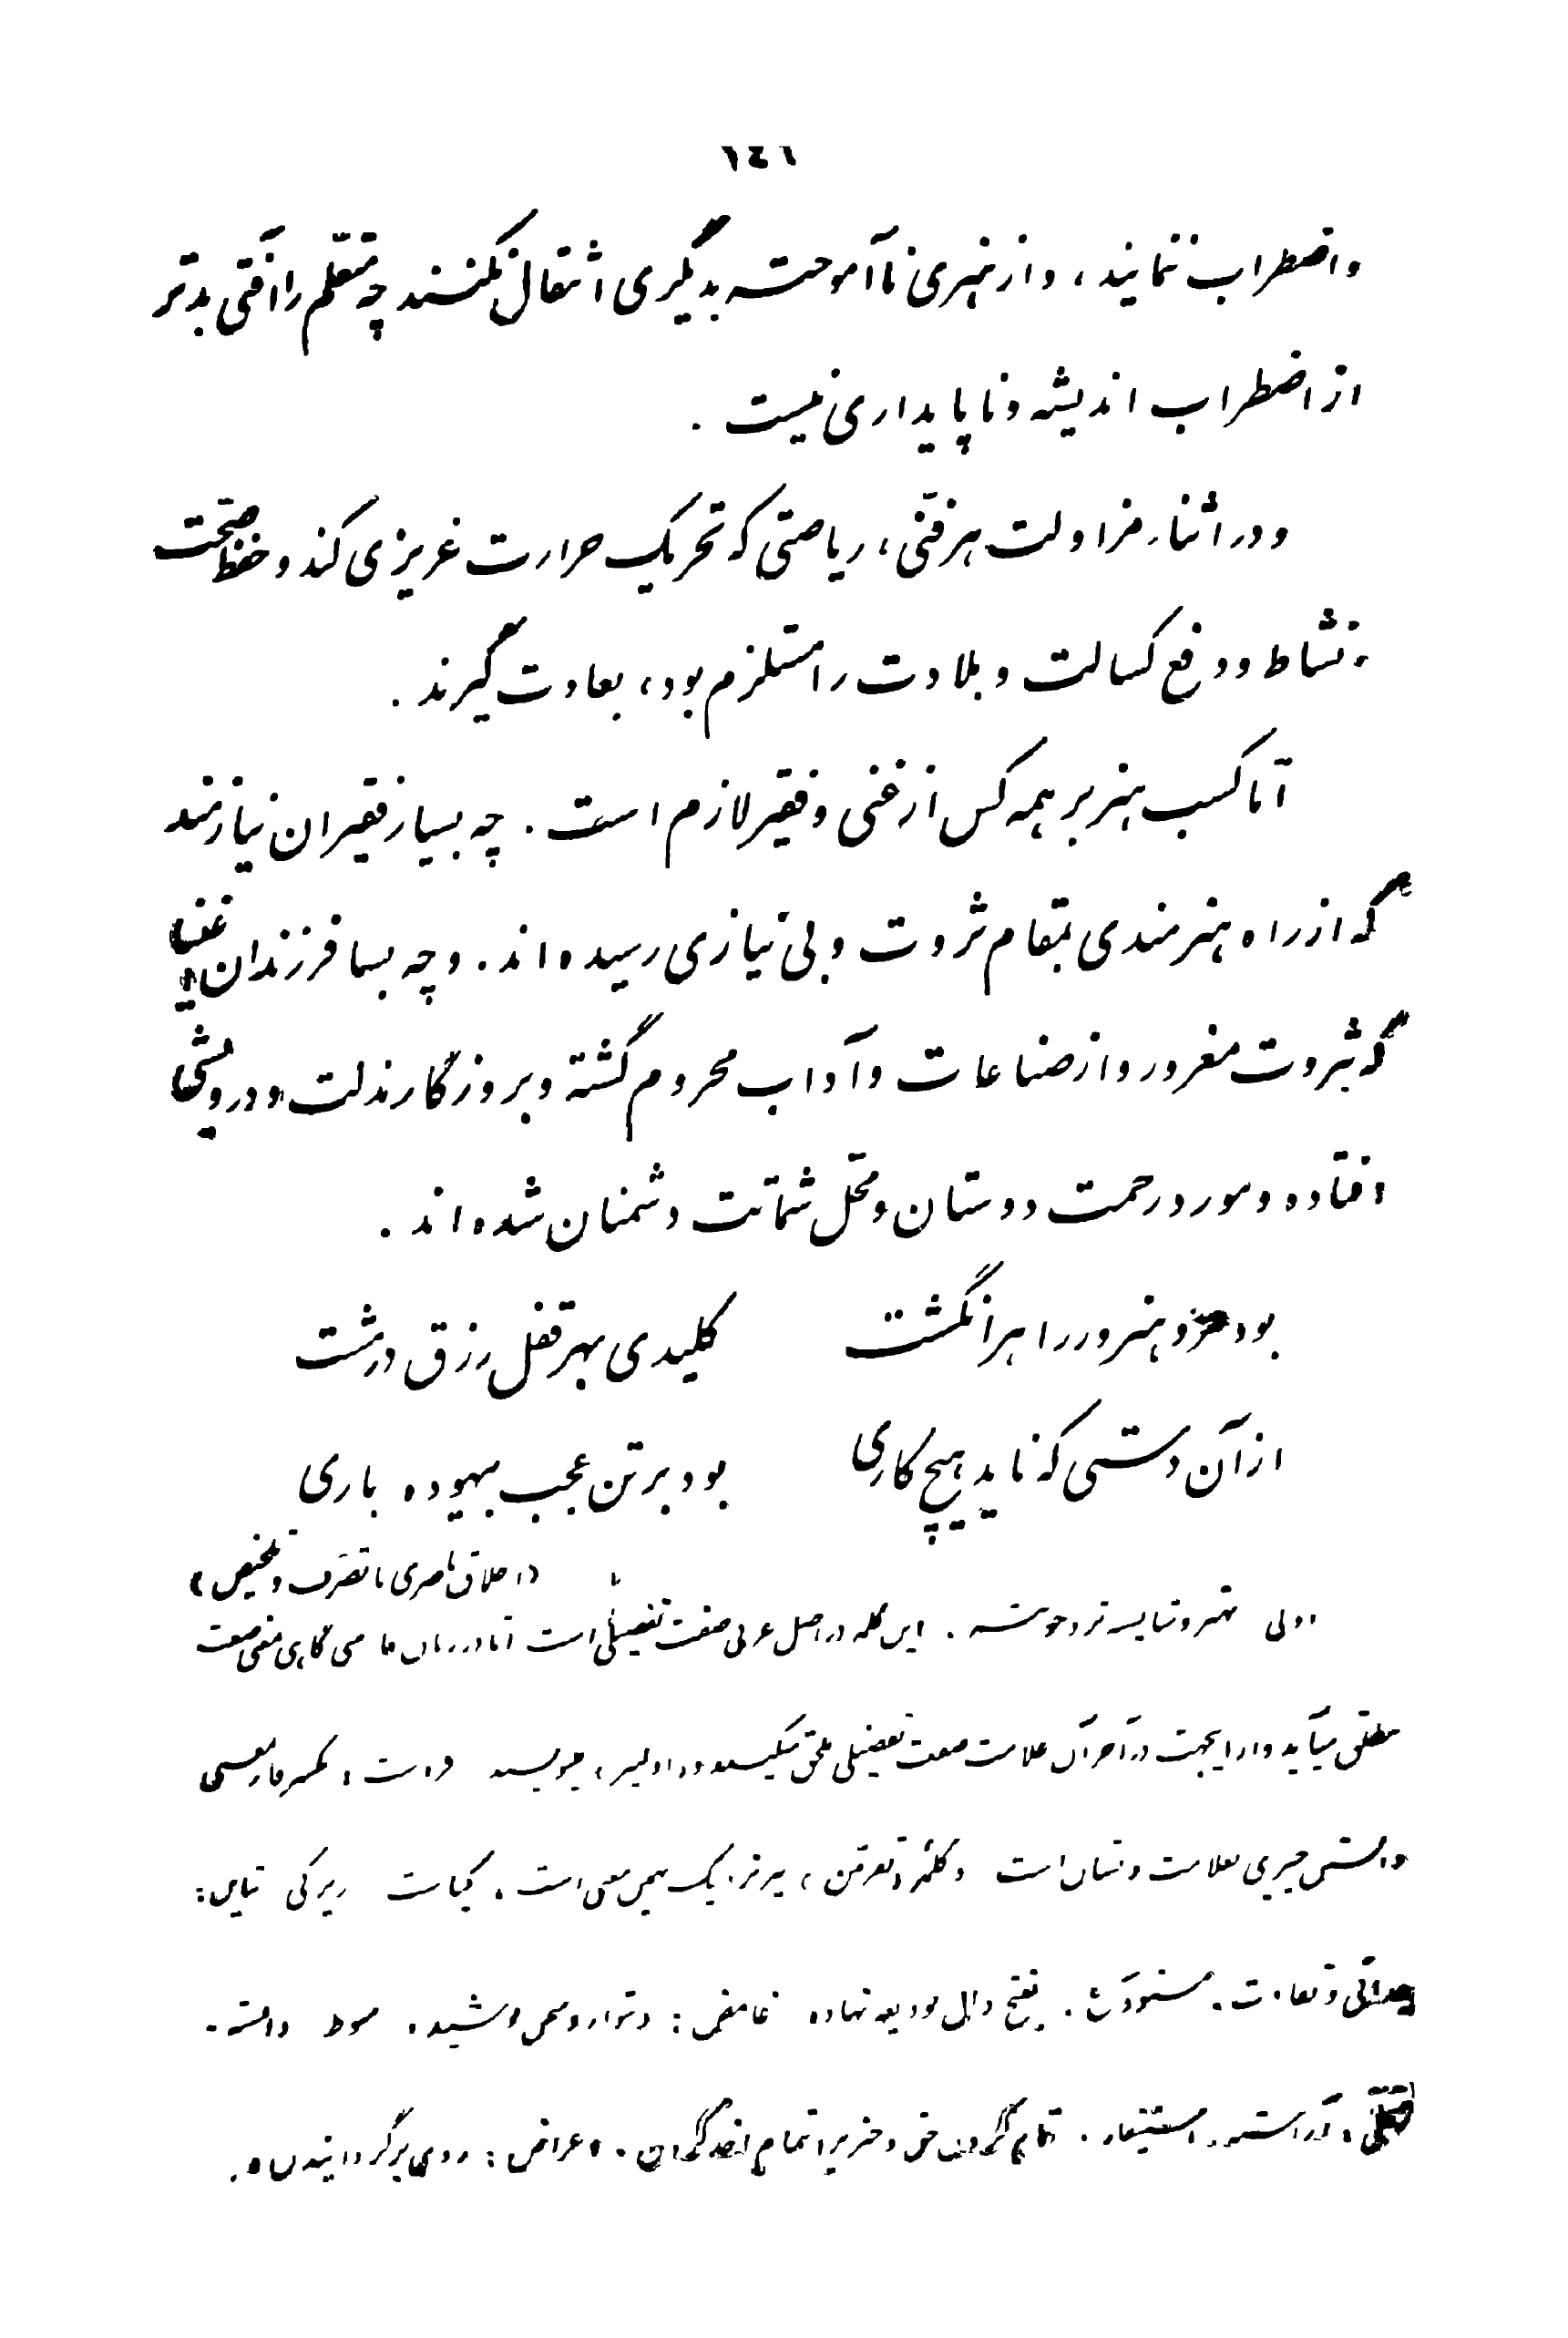 ١٤٦
واضطراب ننمایند، و از هنری ناآموخته بدیگری انتقال نکنند چه متعلّم را آفتی بدتر
از اضطراب اندیشه و ناپایداری نیست .
و در اثناء مزاولت هر فنّی، ریاضتی که تحریک حرارت غریزی کند و حفظ صحّت
و نشاط و دفع کسالت و بلادت را مستلزم بود، بعادت گیرند .
امّا کسب هنر بر همه کس از غنی و فقیر لازم است . چه بسیار فقیران نیازمند
که از راه هنرمندی بمقام ثروت و بی نیازی رسیده اند . و چه بسا فرزندان اغنیا
که بثروت مغرور و از صناعات و آداب محروم گشته و بروزگار مذلت و درویشی
افتاده و مورد رحمت دوستان و محّل شماتت دشمنان شده اند .
بود مرد هنرور را هر انگشت کلیدی بهر قفل رزق در مشت
از آن دستی که ناید هیچ کاری بود بر تن عجب بیهوده باری
(اخلاق ناصری با تصّرف و تلخیص)
اولی بهتر و شایسته تر . این کلمه در اصل عربی صفت تفضیلی است امّا در زبان فارسی گاهی بمعنی صفت
مطلق میآید و از اینجهت در آخر آن علامت صفت تفضیلی ملحق میکنند و اولیتر، میگویند فراست، بکسر فا
دانستن چیزی بعلامت و نشان است و کلمه تفرّس، نیز نزدیک بهمین معنی است . کیاست زیرکی تباین :
جدائی و تفاوت . مستودع . بفتح دال بودیعه نهاده غامض : دشوار و پوشیده .
آراسته . استیفاء . تمام گرفتن حق و چیزی را تمام . اعراض : روی برگردانیدن .